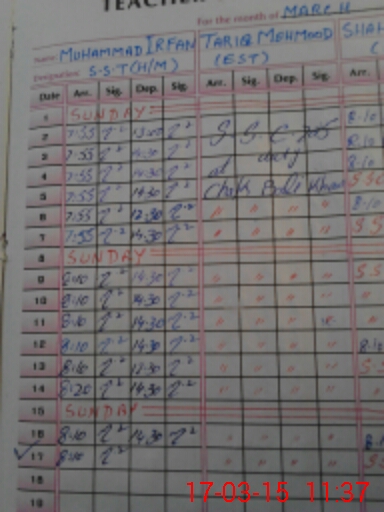 TEACHER
For the month of MARCH
Name MUHAMMAD IRFAN TARIQ MEHMOOD SHAH
Designation S.S.T(H/M) (EST)
Date Arr. Sig. Dep. Sig. Arr. Sig. Dep. Sig.
1 SUNDAY
2 7:55 S.S.C. 8:10
3 7:55 duty 8:10
4 7:55 14:30 at 8:10
5 7:55 14:30 Chak Beli Khan
6 7:55 12:30 " " " " 8:10
7 7:55 14:30 " " " "
8 SUNDAY
9 8:10 14:30 " " " "
10 8:10 14:30 " " " "
11 8:10 14:30 " " " "
12 8:10 14:30 " " " "
13 8:10 12:30 " " " "
14 8:20 14:30 " " " "
15 SUNDAY
16 8:10 14:30 " " " "
17 8:10 " " " "
18
19
17-03-15 11:37